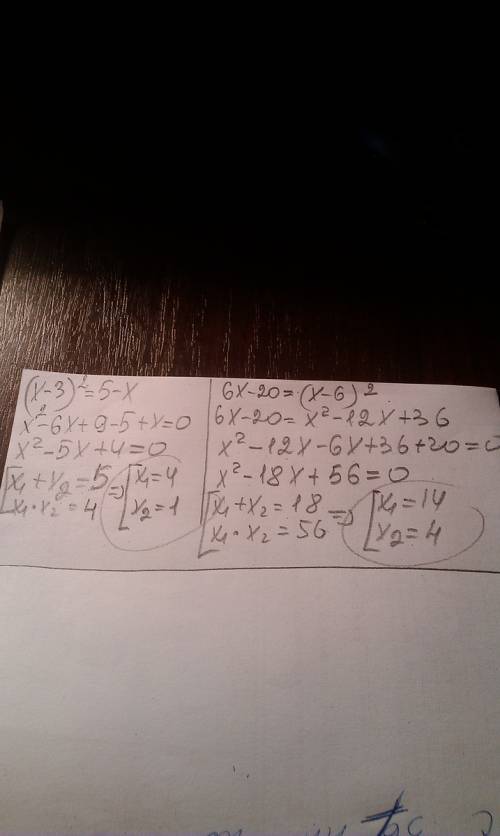 (x-3)²=5-x
x²-6x+9-5+x=0
x²-5x+4=0
[x₁+x₂=5 => [x₁=4
x₁·x₂=4 x₂=1
6x-20=(x-6)²
6x-20=x²-12x+36
x²-12x-6x+36+20=0
x²-18x+56=0
[x₁+x₂=18 => [x₁=14
x₁·x₂=56 x₂=4